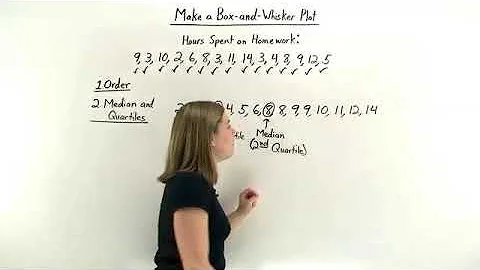 Make a Box-and-Whisker Plot
Hours Spent on Homework:
9, 3, 10, 2, 6, 8, 3, 11, 14, 3, 4, 8, 9, 12, 5
1 Order
2 Median and Quartiles
2 4, 5, 6, 8, 8, 9, 9, 10, 11, 12, 14
Median
(2nd Quartile)